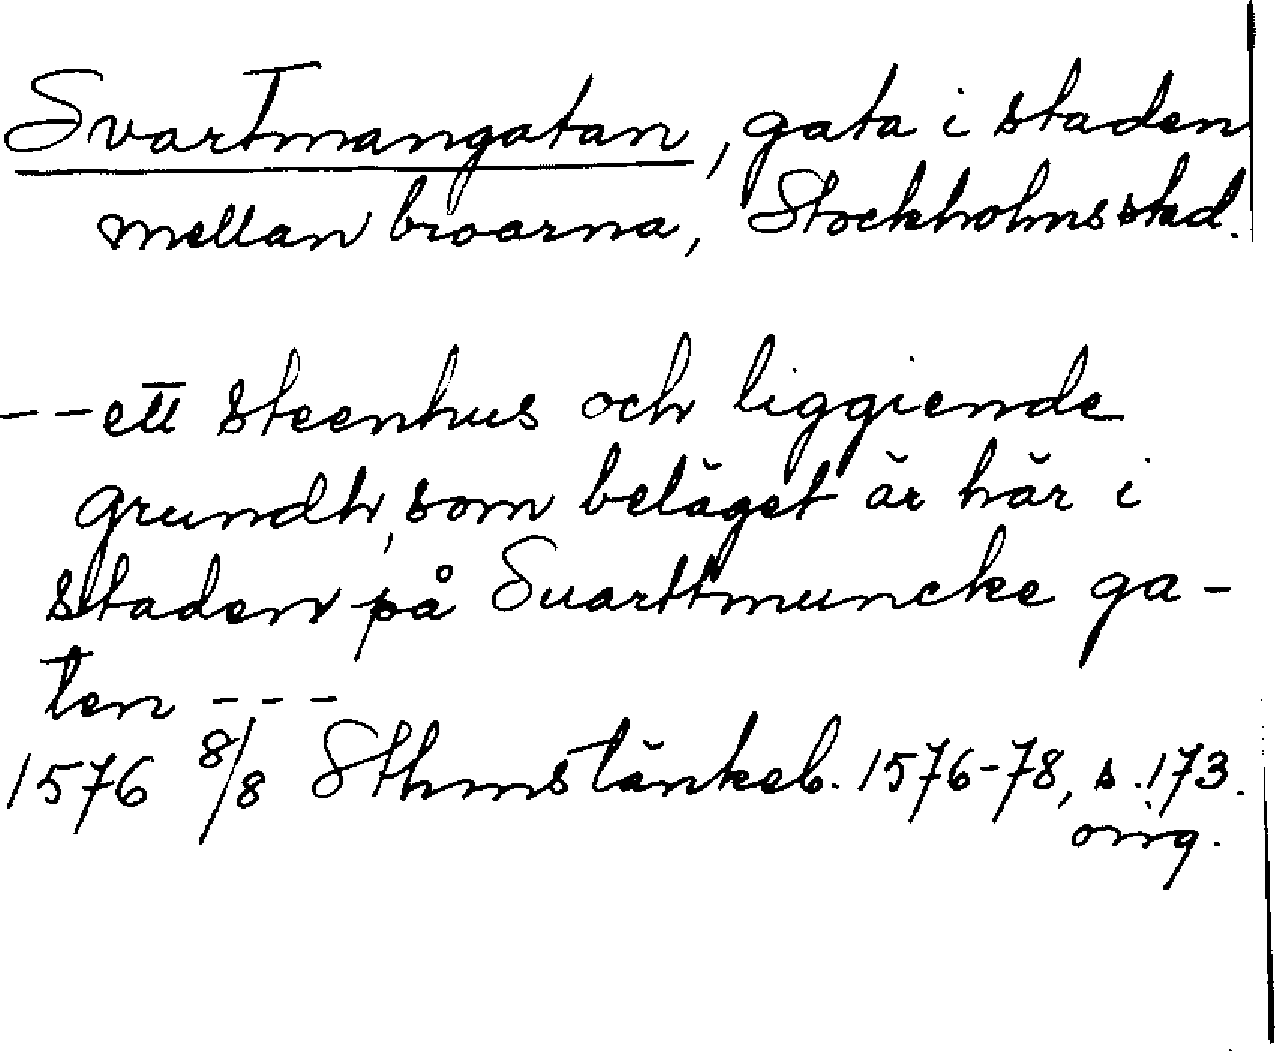 Svartmangatan, gata i staden
mellan broarna, Stockholms stad.
-- ett steenhus och liggiende
grundh, som beläget är här i
staden på Suarttmuncke ga-
ten ---
1576 8/8 Sthms tänkeb. 1576-78, s. 173.
orig.